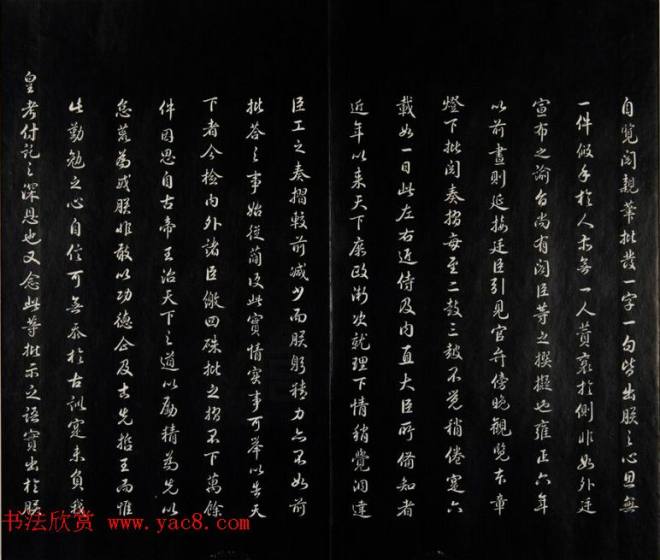 自覽閱親筆批發一字一句皆出朕之心思無
一件假手於人亦無一人贊襄於側非如外廷
宣布之諭旨尚有閣臣等之撰擬也雍正六年
以前晝則延接廷臣引見官弁傍晚觀覽本章
燈下批閱奏摺每至二鼓三鼓不覺稍倦寔六
載如一日此左右近侍及內直大臣所備知者
近年以來天下庶政漸次就理下情稍覺洞達
臣工之奏摺較前減少而朕躬精力亦不如前
批答之事始從簡後此實情實事可舉以告天
下者今檢內外諸臣繳回硃批之摺不下萬餘
件因思自古帝王治天下之道以勵精為先以
怠荒為戒朕非敢以功德企及古先哲王而惟
此勤勉之心自信可無忝於古訓寔未負我
皇考付託之深恩也又念此等批示之語實出於朕
书法欣赏 www.yac8.com